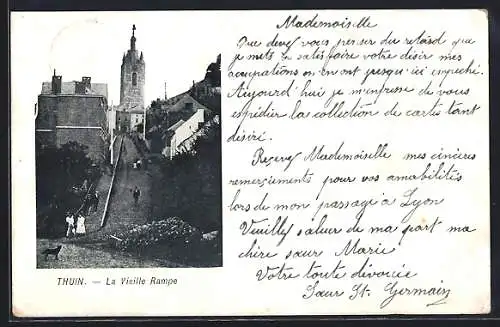 Mademoiselle
Que devez vous penser du retard que
je mets à satisfaire votre désir mes
occupations en ont presqu'ici empêché.
Aujourd'hui je m'empresse de vous
expédier la collection de cartes tant
désiré.
Recevez Mademoiselle mes sincères
remerciements pour vos amabilités
lors de mon passage à Lyon
Veuillez saluer de ma part ma
chère sœur Marie
Votre toute dévouée
Sœur St. Germain
THUIN. — La Vieille Rampe